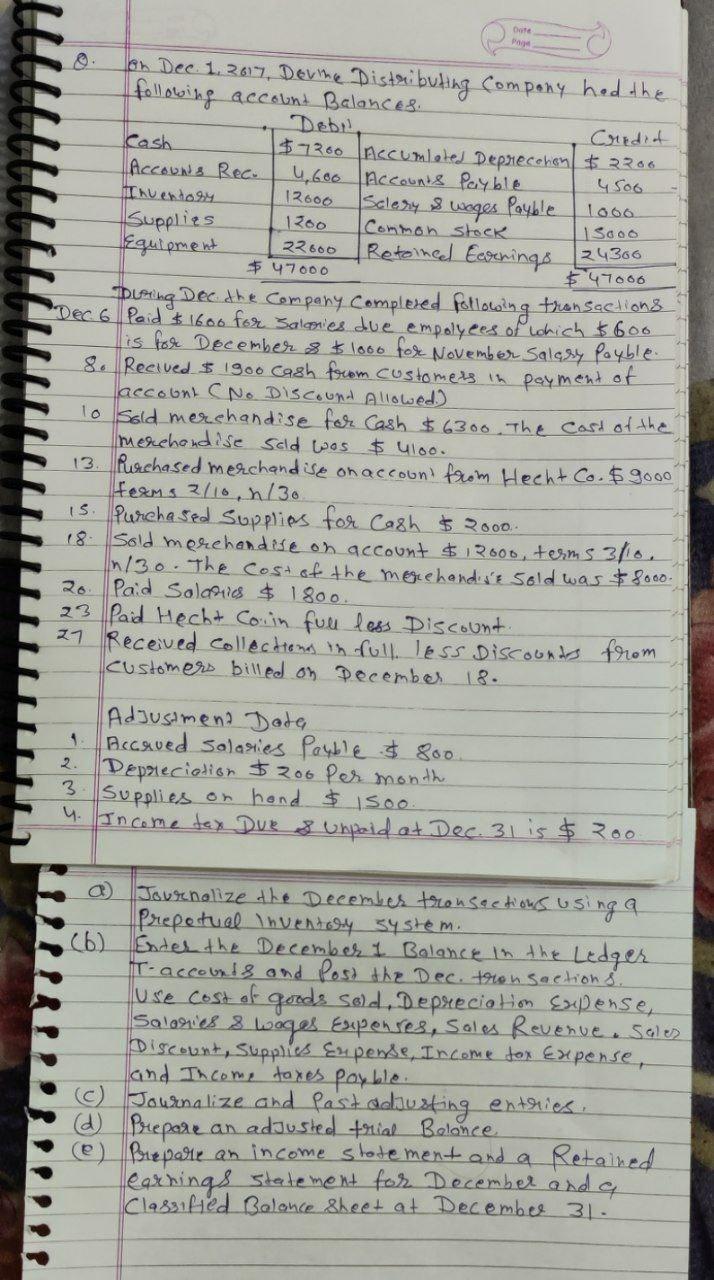 Date
Page
Q. On Dec. 1, 2017, Devine Distributing Company had the
following account Balances.
Debit Credit
Cash $ 7200 Accumlated Deprecation $ 2200
Accounts Rec. 4,600 Accounts Payble 4500
Inventory 12000 Salary & wages Payble 1000
Supplies 1200 Common stock 15000
Equipment 22000 Retained Earnings 24300
$ 47000 $ 47000
During Dec. the Company Completed following transactions
Dec 6 Paid $ 1600 for salaries due empolyees of which $ 600
is for December & $ 1000 for November Salary Payble.
8. Recived $ 1900 cash from customers in payment of
account (No Discount Allowed)
10 Sold merchandise for Cash $ 6300. The cost of the
merchandise sold was $ 4100.
13. Purchased merchandise on account from Hecht Co. $ 9000
terms 2/10, n/30
15. Purchased Supplies for Cash $ 2000.
18. Sold merchandise on account $ 12000, terms 3/10,
n/30. The cost of the merchandise sold was $ 8000.
20. Paid Salaries $ 1800.
23 Paid Hecht Co. in full less Discount.
27 Received collections in full less Discounts from
customers billed on December 18.
Adjustment Data
1. Accrued salaries Payble $ 800.
2. Depreciation $ 200 Per month
3. Supplies on hand $ 1500.
4. Income tax Due & unpaid at Dec. 31 is $ 200
a) Journalize the December transactions using a
Prepetual Inventory system.
(b) Enter the December 1 Balance in the Ledger
T-accounts and Post the Dec. transactions.
Use cost of goods sold, Depreciation Expense,
Salaries & wages Expenses, Sales Revenue. Sales
Discount, Supplies Expense, Income tax Expense,
and Income taxes payble.
(c) Journalize and Past adjusting entries.
(d) Prepare an adjusted trial Balance.
(e) Prepare an income statement and a Retained
earnings statement for December and a
Classified Balance sheet at December 31.